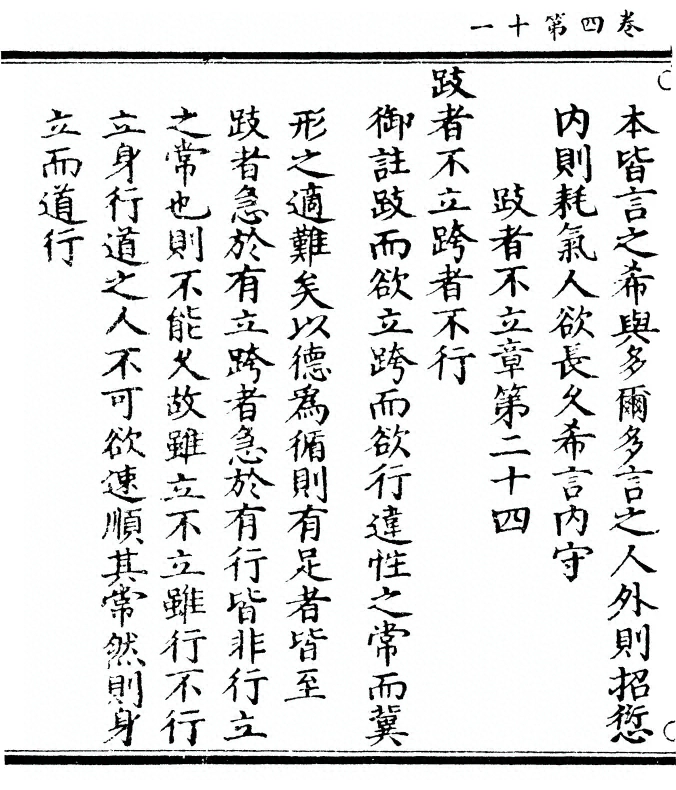 卷四第十一
本皆言之希與多爾多言之人外則招愆
内則耗氣人欲長久希言内守
跂者不立章第二十四
跂者不立跨者不行
御註跂而欲立跨而欲行違性之常而冀
形之適難矣以德爲循則有足者皆至
跂者急於有立跨者急於有行皆非行立
之常也則不能久故雖立不立雖行不行
立身行道之人不可欲速順其常然則身
立而道行